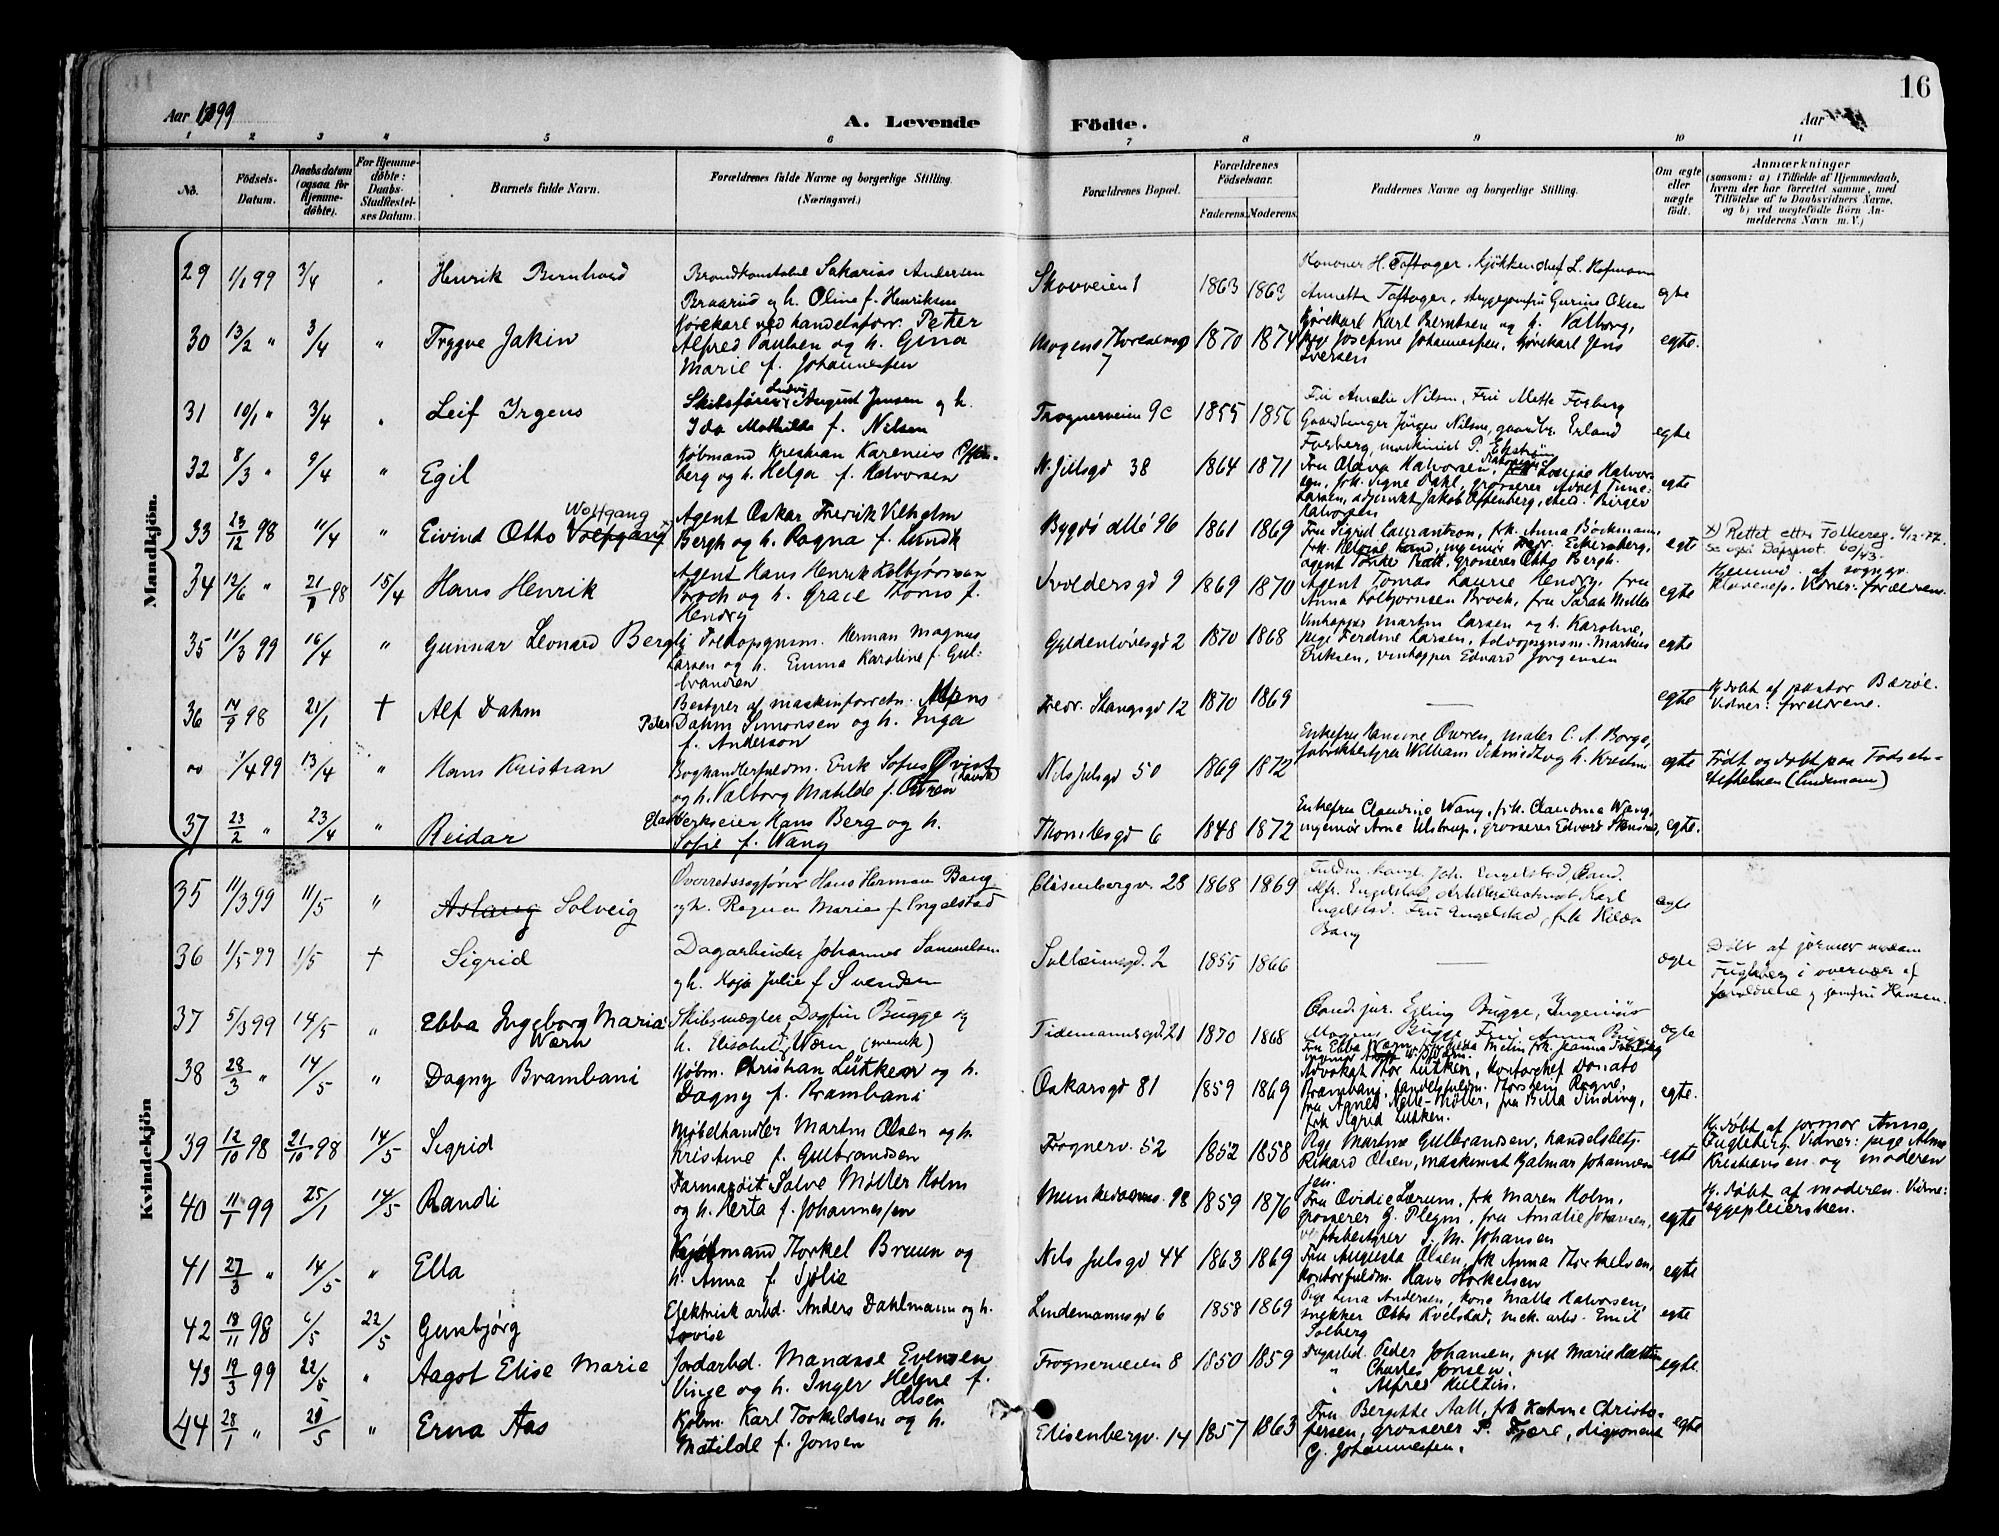 16
Aar 1899
A. Levende Födte.
Aar
1 2 3 4 5 6 7 8 9 10 11
No.
Födsels-Datum.
Daabsdatum (ogsaa for Hjemmedøbte).
For Hjemmedøbte: Daabs-Stadfæstelses Datum.
Barnets fulde Navn.
Forældrenes fulde Navne og borgerlige Stilling. (Næringsvei.)
Forældrenes Bopæl.
Forældrenes Födselsaar.
Faderens. Moderens.
Faddernes Navne og borgerlige Stilling.
Om ægte eller uægte født.
Anmærkninger (saasom: a) i Tilfælde af Hjemmedaab, hvem der har forrettet samme, med Tilföielse af to Daabsvidners Navne, og b) ved uægtefödte Börn Anmelderens Navn m. V.)
Mandkjön.
29 1/1 99 3/4 " Henrik Bernhard
Brandkonstabel Sakarias Andersen
Braarud og h. Oline f. Henriksen
Skovveien 1 1863 1863
H. Toftager, kjökkenchef L. Hofmann
Annette Toftager, strygejomfru Gurine Olsen
egte
30 13/2 " 3/4 " Trygve Jakin
Kjørekarl ved handelsforr. Peter
Alfred Paulsen og h. Gina
Marie f. Johannessen
Mogens Thoresensg 7 1870 1874
Kjørekarl Karl Berntsen og h. Valborg,
Josefine Johannessen, kjørekarl Jens
Iversen
egte.
31 10/1 " 3/4 " Leif Irgens
Skibsfører Ludvig August Jensen og h.
Ida Mathilde f. Nilsen
Frognerveien 9c 1855 1856
Fru Amalie Nilsen, Fru Mette Forberg
Gaardbruger Jörgen Nilsen, gaardbr. Erland
Forberg, maskinist P. Ekström
egte
32 8/3 " 9/4 " Egil
Kjøbmand Kristian Karenius Offenberg
og h. Helga f. Halvorsen
N. Julsgd 38 1864 1871
Fru Olava Halvorsen, Louise Halvorsen,
frk. Signe Dahl, grosserer Adolf Tune-
Larsen, adjunkt Jakob Offenberg, stud. Birger
Halvorsen
egte
33 23/12 98 11/4 " Eivind Otto Wolfgang Volfgang
Agent Oskar Fredrik Vilhelm
Bergh og h. Ragna f. Lundh
Bygdö allé 96 1861 1869
Fru Sigrid Laurantzon, frk. Anna Böckmann,
frk. Helene Lund, ingeniör Eckersberg,
agent Rolf, grosserer Otto Bergh.
egte
x) Rettet etter Folkereg. 6/12-77.
Se også Dagsprot. 60/43.
34 12/6 " 21/8 98 15/4 Hans Henrik
Agent Hans Henrik Kolbjörnsen
Broch og h. Grace Thoms f.
Hendry
Uvoldersgd 9 1869 1870
Agent Tomas Laurie Hendry, fru
Anna Kolbjornsen Broch, fru Sarah Møller
egte
Hjemmed. af sognepr.
Klavenes. Vidner: foreldrene.
35 11/3 99 16/4 " Gunnar Leonard Berg
Toldopsynsm. Herman Magnus
Larsen og h. Emma Karoline f. Gulbrandsen
Gyldenløvesgd 2 1870 1868
Vintapper Martin Larsen og h. Karoline,
pige Ferdine Larsen, toldopsynsm. Markus
Eriksen, vintapper Edvard Jorgensen
egte
36 14/9 98 21/1 † Alf Dahm
Bestyrer af maskinforretn. Mons
Peder Dahm Simonsen og h. Inga
f. Anderson
Fredr. Stangsgd 12 1870 1869
egte
Hj. døbt af pastor Barøe.
Vidner: foreldrene.
1/4 99 13/4 " Hans Kristian
Boghandlerfuldm. Erik Sofus Qvist (dansk)
og h. Valborg Matilde f. Owren
Nils Julsgd 50 1869 1872
Enkefru Hansine Owren, maler C. A. Borge,
fabrikbestyrer William Schmidt og h. Kristine
egte
Födt og døbt paa Födselsstiftelsen (Lindemann)
37 23/2 " 23/4 " Reidar
Glasverkseier Hans Berg og h.
Sofie f. Wang
Thomlesgd 6 1848 1872
Enkefru Claudine Wang, frk. Claudine Wang,
ingeniør Arne Ulstrup, grosserer Edvard Stensrud,
egte.
Kvindekjön
35 11/3 99 11/5 " Aslaug Solveig
Overretssagfører Hans Herman Bang
og h. Ragna Marie f. Engelstad
Elisenbergv. 28 1868 1869
Fuldm. Joh. Engelstad, Cand.
Alf. Engelstad, Karl
Engelstad. Fru Engelstad, frk Hilda
Bang
egte
36 1/5 99 1/5 † Sigrid
Dagarbeider Johannes Samuelsen
og h. Maja Julie f. Svendsen
Solheimsgd. 2 1855 1866
ægte
Döbt af jormor madam
Fugleberg i overvær af
foreldrene og jomfru Hansen.
37 5/3 99 14/5 " Ebba Ingeborg Maria Wærn
Skibsmægler Dagfin Bugge og
h. Elisabeth Wærn (svensk)
Tidemannsgd. 21 1870 1868
Cand. jur. Erling Bugge, Ingeniör
Mogens Bugge, Fru Anna Bugge
Fru Ebba Wærn
ægte
38 28/3 " 14/5 " Dagny Brambani
Kjøbm. Christian Lütken og h.
Dagny f. Brambani
Oskarsgd 81 1859 1869
Advokat Thor Lütken, kontorchef Donato
Brambani, handelsfuldm. Thorstein Rogne,
fru Agnes Nelle-Møller, fru Billa Sinding,
frk Sigrid Lütken.
egte.
39 12/10 98 21/10 98 14/5 Sigrid
Møbelhandler Martin Olsen og h.
Kristine f. Gulbrandsen
Frognerv. 52 1852 1858
Pige Martine Gulbrandsen, handelsbetj.
Rikard Olsen, maskinist Hjalmar Johannessen.
egte
Hj. døbt af jormor Anna
Fugleberg. Vidner: pige Alma
Kristiansen og moderen
40 11/1 99 25/1 14/5 Randi
Farmacöit Salve Møller Holm
og h. Herta f. Johannessen
Munkedamsv. 98 1859 1876
Fru Ovidie Lærum, frk Maren Holm,
grosserer G. Pleym, fru Amalie Johansen,
bestyrer J. M. Johansen
egte
Hj. døbt af moderen. Vidne:
sygepleiersken.
41 27/3 " 14/5 " Ella
Kjøbmand Thorkel Bruun og
h. Anna f. Sjölie
Nils Julsgd 44 1863 1869
Fru Augusta Olsen, frk Anna Thorkelsen,
kontorfuldm. Hans Thorkelsen
egte
42 18/11 98 6/5 22/5 Gunbjörg
Elektrisk arbd. Anders Dahlmann og h.
Lovise
Lindemannsgd 6 1858 1869
Pige Lina Andersen, kone Malla Halvorsen,
snekker Otto Kvelstad, mek. arbd. Emil
Solberg
egte
43 19/3 99 22/5 " Aagot Elise Marie
Jordarbd. Manasse Evensen
Vinge og h. Inger Helene f.
Olsen
Frognerveien 8 1850 1859
Dagarbd. Peder Johansen, pige Marie
" Charles Jonsen,
" Alfred Hultin.
egte.
44 28/1 " 21/5 " Erna Aas
Kjøbm. Karl Torkildsen og h.
Matilde f. Jonsen
Elisenbergv. 14 1857 1863
Fru Bergitte Aall, frk Katrine Christofersen,
grosserer P. Fjære, disponent
G. Johannessen.
egte